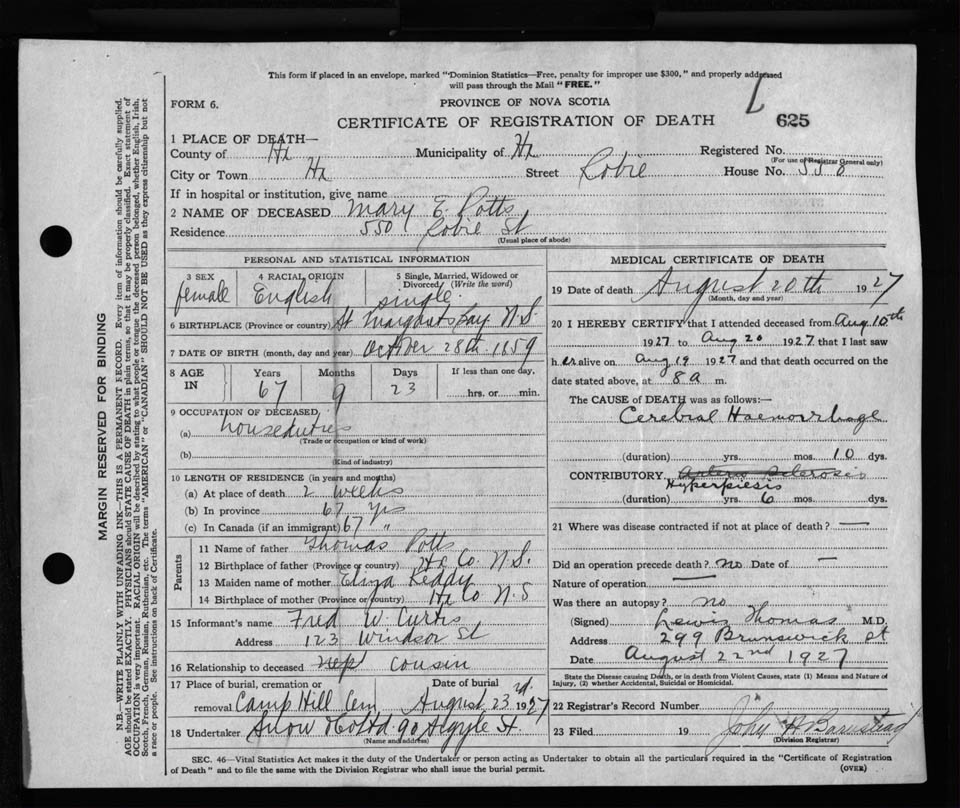 This form if placed in an envelope, marked "Dominion Statistics—Free, penalty for improper use $300," and properly addressed
will pass through the Mail "FREE."
FORM 6.
PROVINCE OF NOVA SCOTIA
CERTIFICATE OF REGISTRATION OF DEATH
625
1 PLACE OF DEATH—
County of Hx Municipality of Hx Registered No.
(For use of Registrar General only)
City or Town Hx Street Robie House No. 550
If in hospital or institution, give name
2 NAME OF DECEASED Mary E. Potts
Residence 550 Robie St
(Usual place of abode)
PERSONAL AND STATISTICAL INFORMATION
3 SEX 4 RACIAL ORIGIN 5 Single, Married, Widowed or Divorced (Write the word)
female English single.
6 BIRTHPLACE (Province or country) St Margarets Bay N.S.
7 DATE OF BIRTH (month, day and year) October 28th 1859
8 AGE IN Years Months Days If less than one day,
67 9 23 hrs. or min.
9 OCCUPATION OF DECEASED
(a) houseduties
(Trade or occupation or kind of work)
(b)
(Kind of industry)
10 LENGTH OF RESIDENCE (in years and months)
(a) At place of death 2 weeks
(b) In province 67 yrs
(c) In Canada (if an immigrant) 67 "
Parents
11 Name of father Thomas Potts
12 Birthplace of father (Province or country) Hx Co. N.S.
13 Maiden name of mother Eliza Reddy
14 Birthplace of mother (Province or country) Hx Co N.S
15 Informant's name Fred W. Curtis
Address 123 Windsor St
16 Relationship to deceased nep cousin
17 Place of burial, cremation or removal Date of burial
Camp Hill Cem August 23rd. 1927
18 Undertaker Snow Co Ltd 90 Argyle St.
(Name and address)
MEDICAL CERTIFICATE OF DEATH
19 Date of death August 20th 1927
(Month, day and year)
20 I HEREBY CERTIFY that I attended deceased from Aug 10th
1927 to Aug 20 1927 that I last saw
her alive on Aug 19 1927 and that death occurred on the
date stated above, at 8 a m.
The CAUSE of DEATH was as follows:—
Cerebral Haemorrhage
(duration) yrs. mos. 10 dys.
CONTRIBUTORY Arterio Sclerosis
Hyperpiesis
(duration) yrs. 6 mos. dys.
21 Where was disease contracted if not at place of death? —
Did an operation precede death? no Date of —
Nature of operation —
Was there an autopsy? no
(Signed) Lewis Thomas M.D.
Address 299 Brunswick St
Date August 22nd 1927
State the Disease causing Death, or in death from Violent Causes, state (1) Means and Nature of
Injury, (2) whether Accidental, Suicidal or Homicidal.
22 Registrar's Record Number
23 Filed 19 John H Barnstead
(Division Registrar)
SEC. 46—Vital Statistics Act makes it the duty of the Undertaker or person acting as Undertaker to obtain all the particulars required in the "Certificate of Registration
of Death" and to file the same with the Division Registrar who shall issue the burial permit.
(OVER)
MARGIN RESERVED FOR BINDING
N.B.—WRITE PLAINLY WITH UNFADING INK—THIS IS A PERMANENT RECORD. Every item of information should be carefully supplied.
AGE should be stated EXACTLY. PHYSICIANS should STATE CAUSE OF DEATH in plain terms, so that it may be properly classified. Exact statement of
OCCUPATION is very important. RACIAL ORIGIN will be described by stating to what people or tongue the deceased person belonged, whether English, Irish,
Scotch, French, German, Russian, Ruthenian, etc. The terms "AMERICAN" or "CANADIAN" SHOULD NOT BE USED as they express citizenship but not
a race or people. See instructions on back of Certificate.